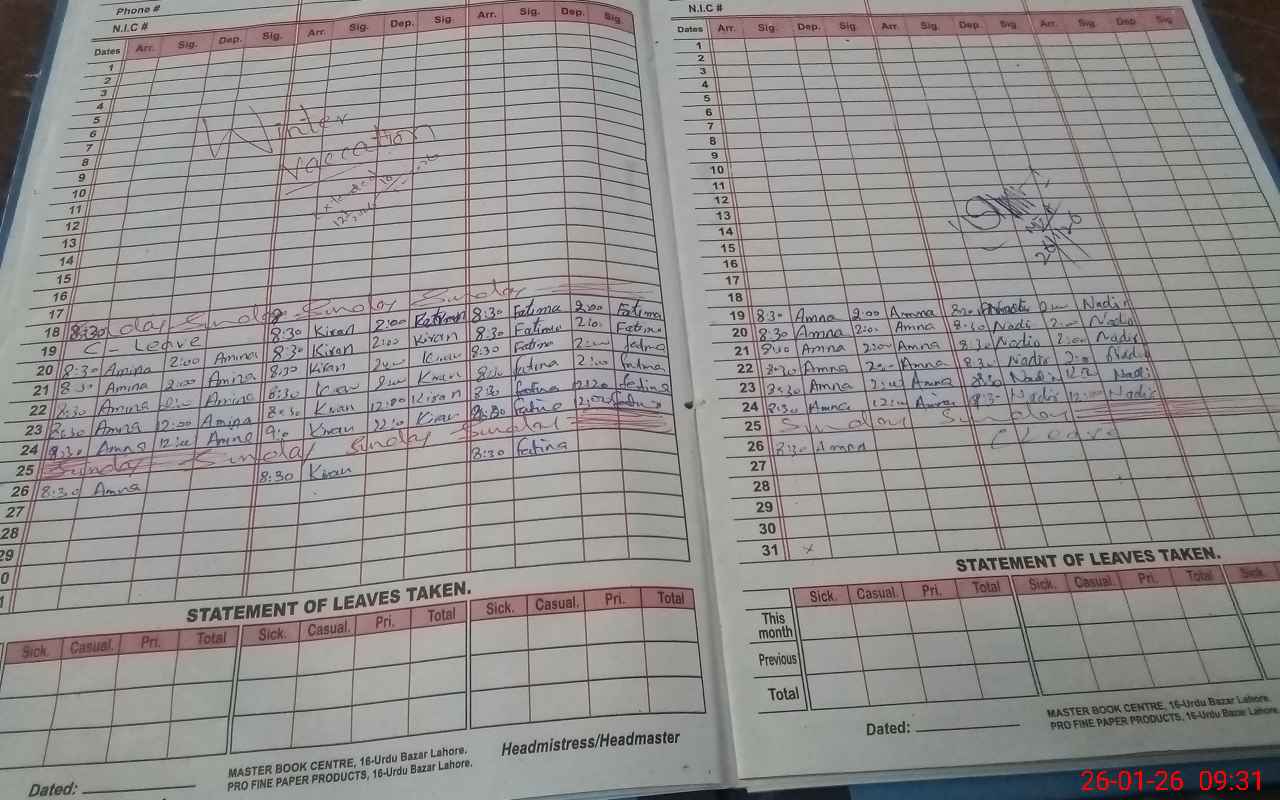 Phone #
N.I.C #
Dates Arr. Sig. Dep. Sig. Arr. Sig. Dep. Sig Arr. Sig. Dep. Sig
1
2
3
4
5
6
7
8
9
10
11
12
13
14
15
16
Winter
Vaccation
17 Sunday Sunday Sunday
18 8:30 8:30 Kiran 2:00 8:30 Fatima 2:00 Fatima
19 C - Leave 8:30 Kiran 2:00 Kiran 8:30 Fatima 2:00 Fatima
20 8:30 Amina 2:00 Amina 8:30 Kiran 2:00 Kiran 8:30 Fatima 2:00 fatma
21 8:30 Amina 2:00 Amina 8:30 Kiran 2:00 Kiran 8:30 fatima 2:00 fatima
22 8:30 Amina Amina 8:30 Kiran 12:00 Kiran 8:30 fatima fatima
23 8:30 Amna 12:00 Amina Kiran Kiran fatima
24 8:30 Amna 12:00 Amna
25 Sunday Sunday Sunday Sunday
26 8:30 Amna 8:30 Kiran 8:30 fatima
27
28
29
0
1
STATEMENT OF LEAVES TAKEN.
Sick. Casual. Pri. Total Sick. Casual. Pri. Total Sick. Casual. Pri. Total
Dated:
MASTER BOOK CENTRE, 16-Urdu Bazar Lahore.
PRO FINE PAPER PRODUCTS, 16-Urdu Bazar Lahore.
Headmistress/Headmaster
N.I.C #
Dates Arr. Sig. Dep. Sig. Arr. Sig. Dep. Sig. Arr. Sig. Dep. Sig
1
2
3
4
5
6
7
8
9
10
11
12
13
14
15
16
17
18
19 8:30 Amna 2:00 Amna 8:30 Nadir
20 8:30 Amna 2:00 Amna 8:30 Nadi 2:00 Nadir
21 8:30 Amna 2:00 Amna 8:30 Nadio 2:00 Nadir
22 8:30 Amna 2:00 Amna 8:30 Nadir 2:0 Nadi
23 8:30 Amna Amna 8:30 Nadir Nadi
24 8:30 Amna 12:00 Amna 8:30 Nadir 12:00 Nadir
25 Sunday Sunday
26 8:30 Amna C Leave
27
28
29
30
31
STATEMENT OF LEAVES TAKEN.
Sick. Casual. Pri. Total Sick. Casual. Pri. Total Sick.
This month
Previous
Total
Dated:
MASTER BOOK CENTRE, 16-Urdu Bazar Lahore.
PRO FINE PAPER PRODUCTS, 16-Urdu Bazar Lahore.
26-01-26 09:31